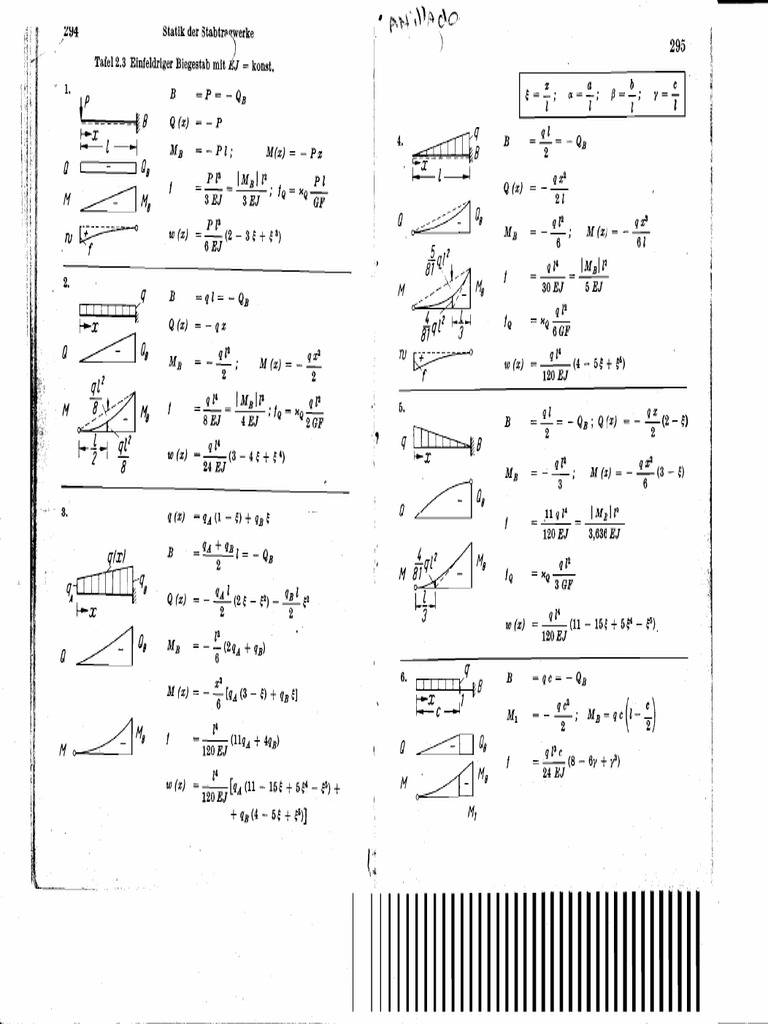 Anillado
294 Statik der Stabtragwerke
Tafel 2.3 Einfeldriger Biegestab mit EJ = konst.
1.
P
B
x
l
Q Q_B
M M_B
w f
B = P = − Q_B
Q (x) = − P
M_B = − P l ; M(x) = − P x
f = P l³ / 3 EJ = |M_B| l² / 3 EJ ; f_Q = ϰ_Q P l / GF
w (x) = P l³ / 6 EJ (2 − 3 ξ + ξ³)
2.
q
x
Q Q_B
M ql²/8 M_B
l/2 ql²/8
B = q l = − Q_B
Q (x) = − q x
M_B = − q l² / 2 ; M (x) = − q x² / 2
f = q l⁴ / 8 EJ = |M_B| l² / 4 EJ ; f_Q = ϰ_Q q l² / 2 GF
w (x) = q l⁴ / 24 EJ (3 − 4 ξ + ξ⁴)
3.
q(x)
q_A q_B
x
Q Q_B
M M_B
q (x) = q_A (1 − ξ) + q_B ξ
B = q_A + q_B / 2 l = − Q_B
Q (x) = − q_A l / 2 (2 ξ − ξ²) − q_B l / 2 ξ²
M_B = − l² / 6 (2 q_A + q_B)
M (x) = − x² / 6 [q_A (3 − ξ) + q_B ξ]
f = l⁴ / 120 EJ (11 q_A + 4 q_B)
w (x) = l⁴ / 120 EJ [q_A (11 − 15 ξ + 5 ξ⁴ − ξ⁵) +
+ q_B (4 − 5 ξ + ξ⁵)]
295
ξ = x / l ; α = a / l ; β = b / l ; γ = c / l
4.
q
B
x
l
Q Q_B
5/81 ql²
M M_B
4/81 ql² l/3
w f
B = q l / 2 = − Q_B
Q (x) = − q x² / 2 l
M_B = − q l² / 6 ; M (x) = − q x³ / 6 l
f = q l⁴ / 30 EJ = |M_B| l² / 5 EJ
f_Q = ϰ_Q q l² / 6 GF
w (x) = q l⁴ / 120 EJ (4 − 5 ξ + ξ⁵)
5.
q B
x
Q Q_B
M 4/81 ql² M_B
l/3
B = q l / 2 = − Q_B ; Q (x) = − q x / 2 (2 − ξ)
M_B = − q l² / 3 ; M (x) = − q x² / 6 (3 − ξ)
f = 11 q l⁴ / 120 EJ = |M_B| l² / 3,636 EJ
f_Q = ϰ_Q q l² / 3 GF
w (x) = q l⁴ / 120 EJ (11 − 15 ξ + 5 ξ⁴ − ξ⁵)
6.
q
B
x 1
c
Q Q_B
M M_B
M_1
B = q c = − Q_B
M_1 = − q c² / 2 ; M_B = q c (l − c / 2)
f = q l³ c / 24 EJ (8 − 6 γ + γ³)